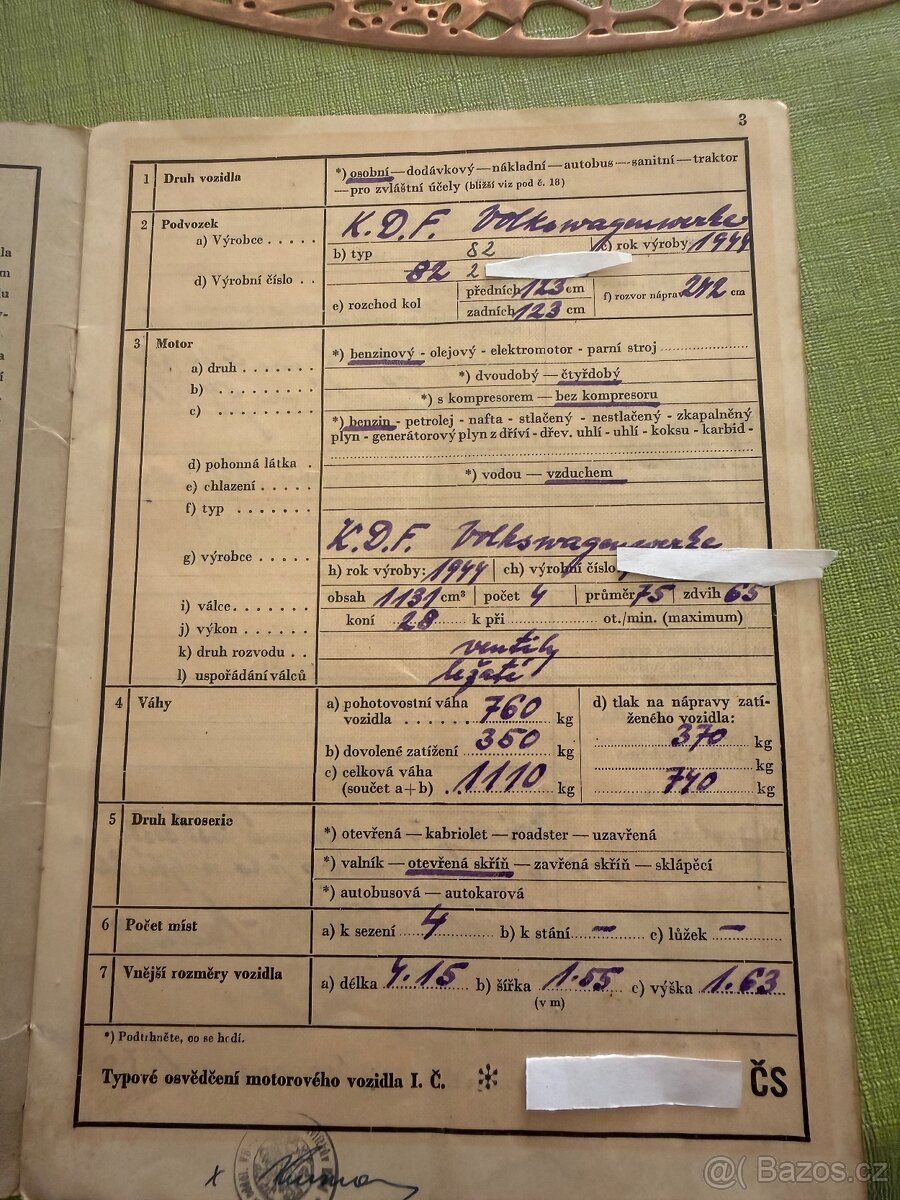 3
1 Druh vozidla *) osobní — dodávkový — nákladní — autobus — sanitní — traktor
— pro zvláštní účely (bližší viz pod č. 18)
2 Podvozek K.D.F. Volkswagenwerke
a) Výrobce . . . . . b) typ 82 c) rok výroby 1944
d) Výrobní číslo . . 82 2
e) rozchod kol předních 123 cm f) rozvor náprav 242 cm
zadních 123 cm
3 Motor *) benzinový - olejový - elektromotor - parní stroj
a) druh . . . . . . . *) dvoudobý — čtyřdobý
b) . . . . . . . . . *) s kompresorem — bez kompresoru
c) . . . . . . . . . *) benzin - petrolej - nafta - stlačený - nestlačený - zkapalněný
plyn - generátorový plyn z dříví - dřev. uhlí - uhlí - koksu - karbid -
d) pohonná látka .
e) chlazení . . . . . *) vodou — vzduchem
f) typ . . . . . . .
g) výrobce . . . . K.D.F. Volkswagenwerke
h) rok výroby: 1944 ch) výrobní číslo
i) válce . . . . . . obsah 1131 cm³ počet 4 průměr 75 zdvih 65
j) výkon . . . . . . koní 28 k při ot./min. (maximum)
k) druh rozvodu . . ventily
l) uspořádání válců ležatí
4 Váhy a) pohotovostní váha
vozidla . . . . . . 760 kg
b) dovolené zatížení 350 kg
c) celková váha
(součet a+b) . 1110 kg
d) tlak na nápravy zatí-
ženého vozidla:
370 kg
kg
740 kg
5 Druh karoserie *) otevřená — kabriolet — roadster — uzavřená
*) valník — otevřená skříň — zavřená skříň — sklápěcí
*) autobusová — autokarová
6 Počet míst a) k sezení 4 b) k stání — c) lůžek —
7 Vnější rozměry vozidla a) délka 4.15 b) šířka 1.55 c) výška 1.63
(v m)
*) Podtrhněte, co se hodí.
Typové osvědčení motorového vozidla I. Č. ČS
@( Bazos.cz